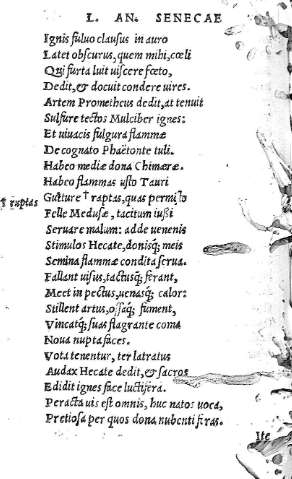 L. AN. SENECAE
Ignis fuluo clausus in auro
Latet obscurus, quem mihi, cœli
Qui furta luit uiscere fœto,
Dedit, & docuit condere uires.
Artem Prometheus dedit, at tenuit
Sulfure tectos Mulciber ignes:
Et uiuacis fulgura flammæ
De cognato Phaëtonte tuli.
Habeo mediæ dona Chimæræ.
Habeo flammas usto Tauri
† raptas
Gutture † raptas, quas permisto
Felle Medusæ, tacitum iußi
Seruare malum: adde uenenis
Stimulos Hecate, donisq; meis
Semina flammæ condita serua.
Fallant uisus, tactusq; ferant,
Meet in pectus, uenasq; calor:
Stillent artus, oßaq; fument,
Vincatq; suas flagrante coma
Noua nupta faces.
Vota tenentur, ter latratus
Audax Hecate dedit, & sacros
Edidit ignes face luctifera.
Peracta uis est omnis, huc natos uoca,
Pretiosa per quos dona nubenti feras.
Ite